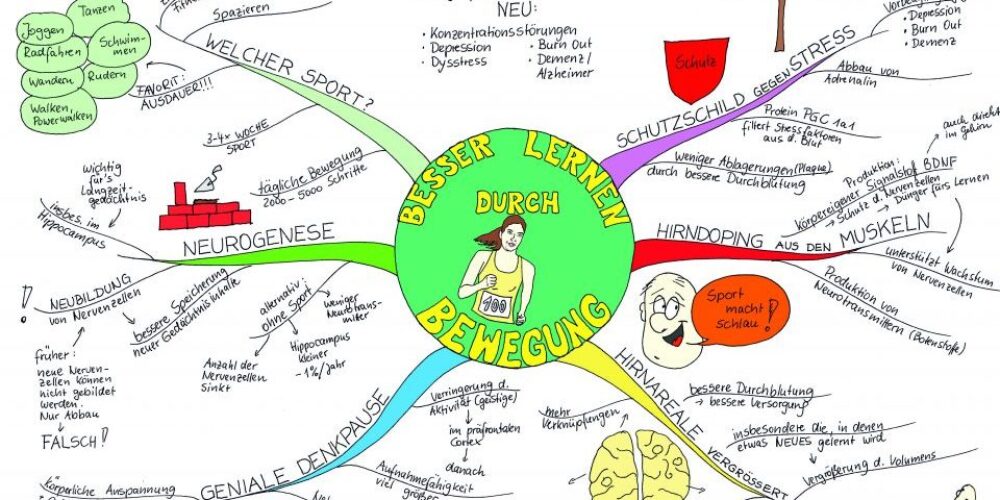 BESSER LERNEN
DURCH
BEWEGUNG
100
WELCHER SPORT?
Spazieren
Tanzen
Joggen
Radfahren
Schwim-
men
Wandern
Rudern
Walken,
Powerwalken
FAVORIT:
AUSDAUER!!!
3-4x WOCHE
SPORT
tägliche Bewegung
2000 - 5000 Schritte
NEU:
• Konzentrationsstörungen
• Depression
• Dysstress
• Burn Out
• Demenz/
Alzheimer
Schutz
SCHUTZSCHILD GEGEN STRESS
• Depression
• Burn Out
• Demenz
Abbau von
Adrenalin
Protein PGC 1a1
filtert Stressfaktoren
aus d. Blut
weniger Ablagerungen (Plaque)
durch bessere Durchblutung
HIRNDOPING AUS DEN MUSKELN
Produktion:
körpereigener Signalstoff BDNF
→ Schutz d. Nervenzellen
→ Dünger fürs Lernen
auch direkt
im Gehirn
unterstützt Wachstum
von Nervenzellen
Produktion von
Neurotransmittern (Botenstoffe)
Sport
macht
schlau!
HIRNAREALE VERGRÖSSERT
bessere Durchblutung
→ bessere Versorgung
insbesondere die, in denen
etwas NEUES gelernt wird
Vergrößerung d. Volumens
mehr
Verknüpfungen
GENIALE DENKPAUSE
Verringerung d.
Aktivität (geistige)
im präfrontalen
Cortex
danach
Aufnahmefähigkeit
viel größer
körperliche Anspannung
NEUROGENESE
wichtig
für's
Langzeit-
gedächtnis
insbes. im
Hippocampus
! NEUBILDUNG
von Nervenzellen
früher:
neue Nerven-
zellen können
nicht gebildet
werden.
Nur Abbau
FALSCH!
bessere Speicherung
neuer Gedächtnisinhalte
alternativ:
ohne Sport
Anzahl der
Nervenzellen
sinkt
Hippocampus
kleiner
-1%/Jahr
weniger
Neurotrans-
mitter